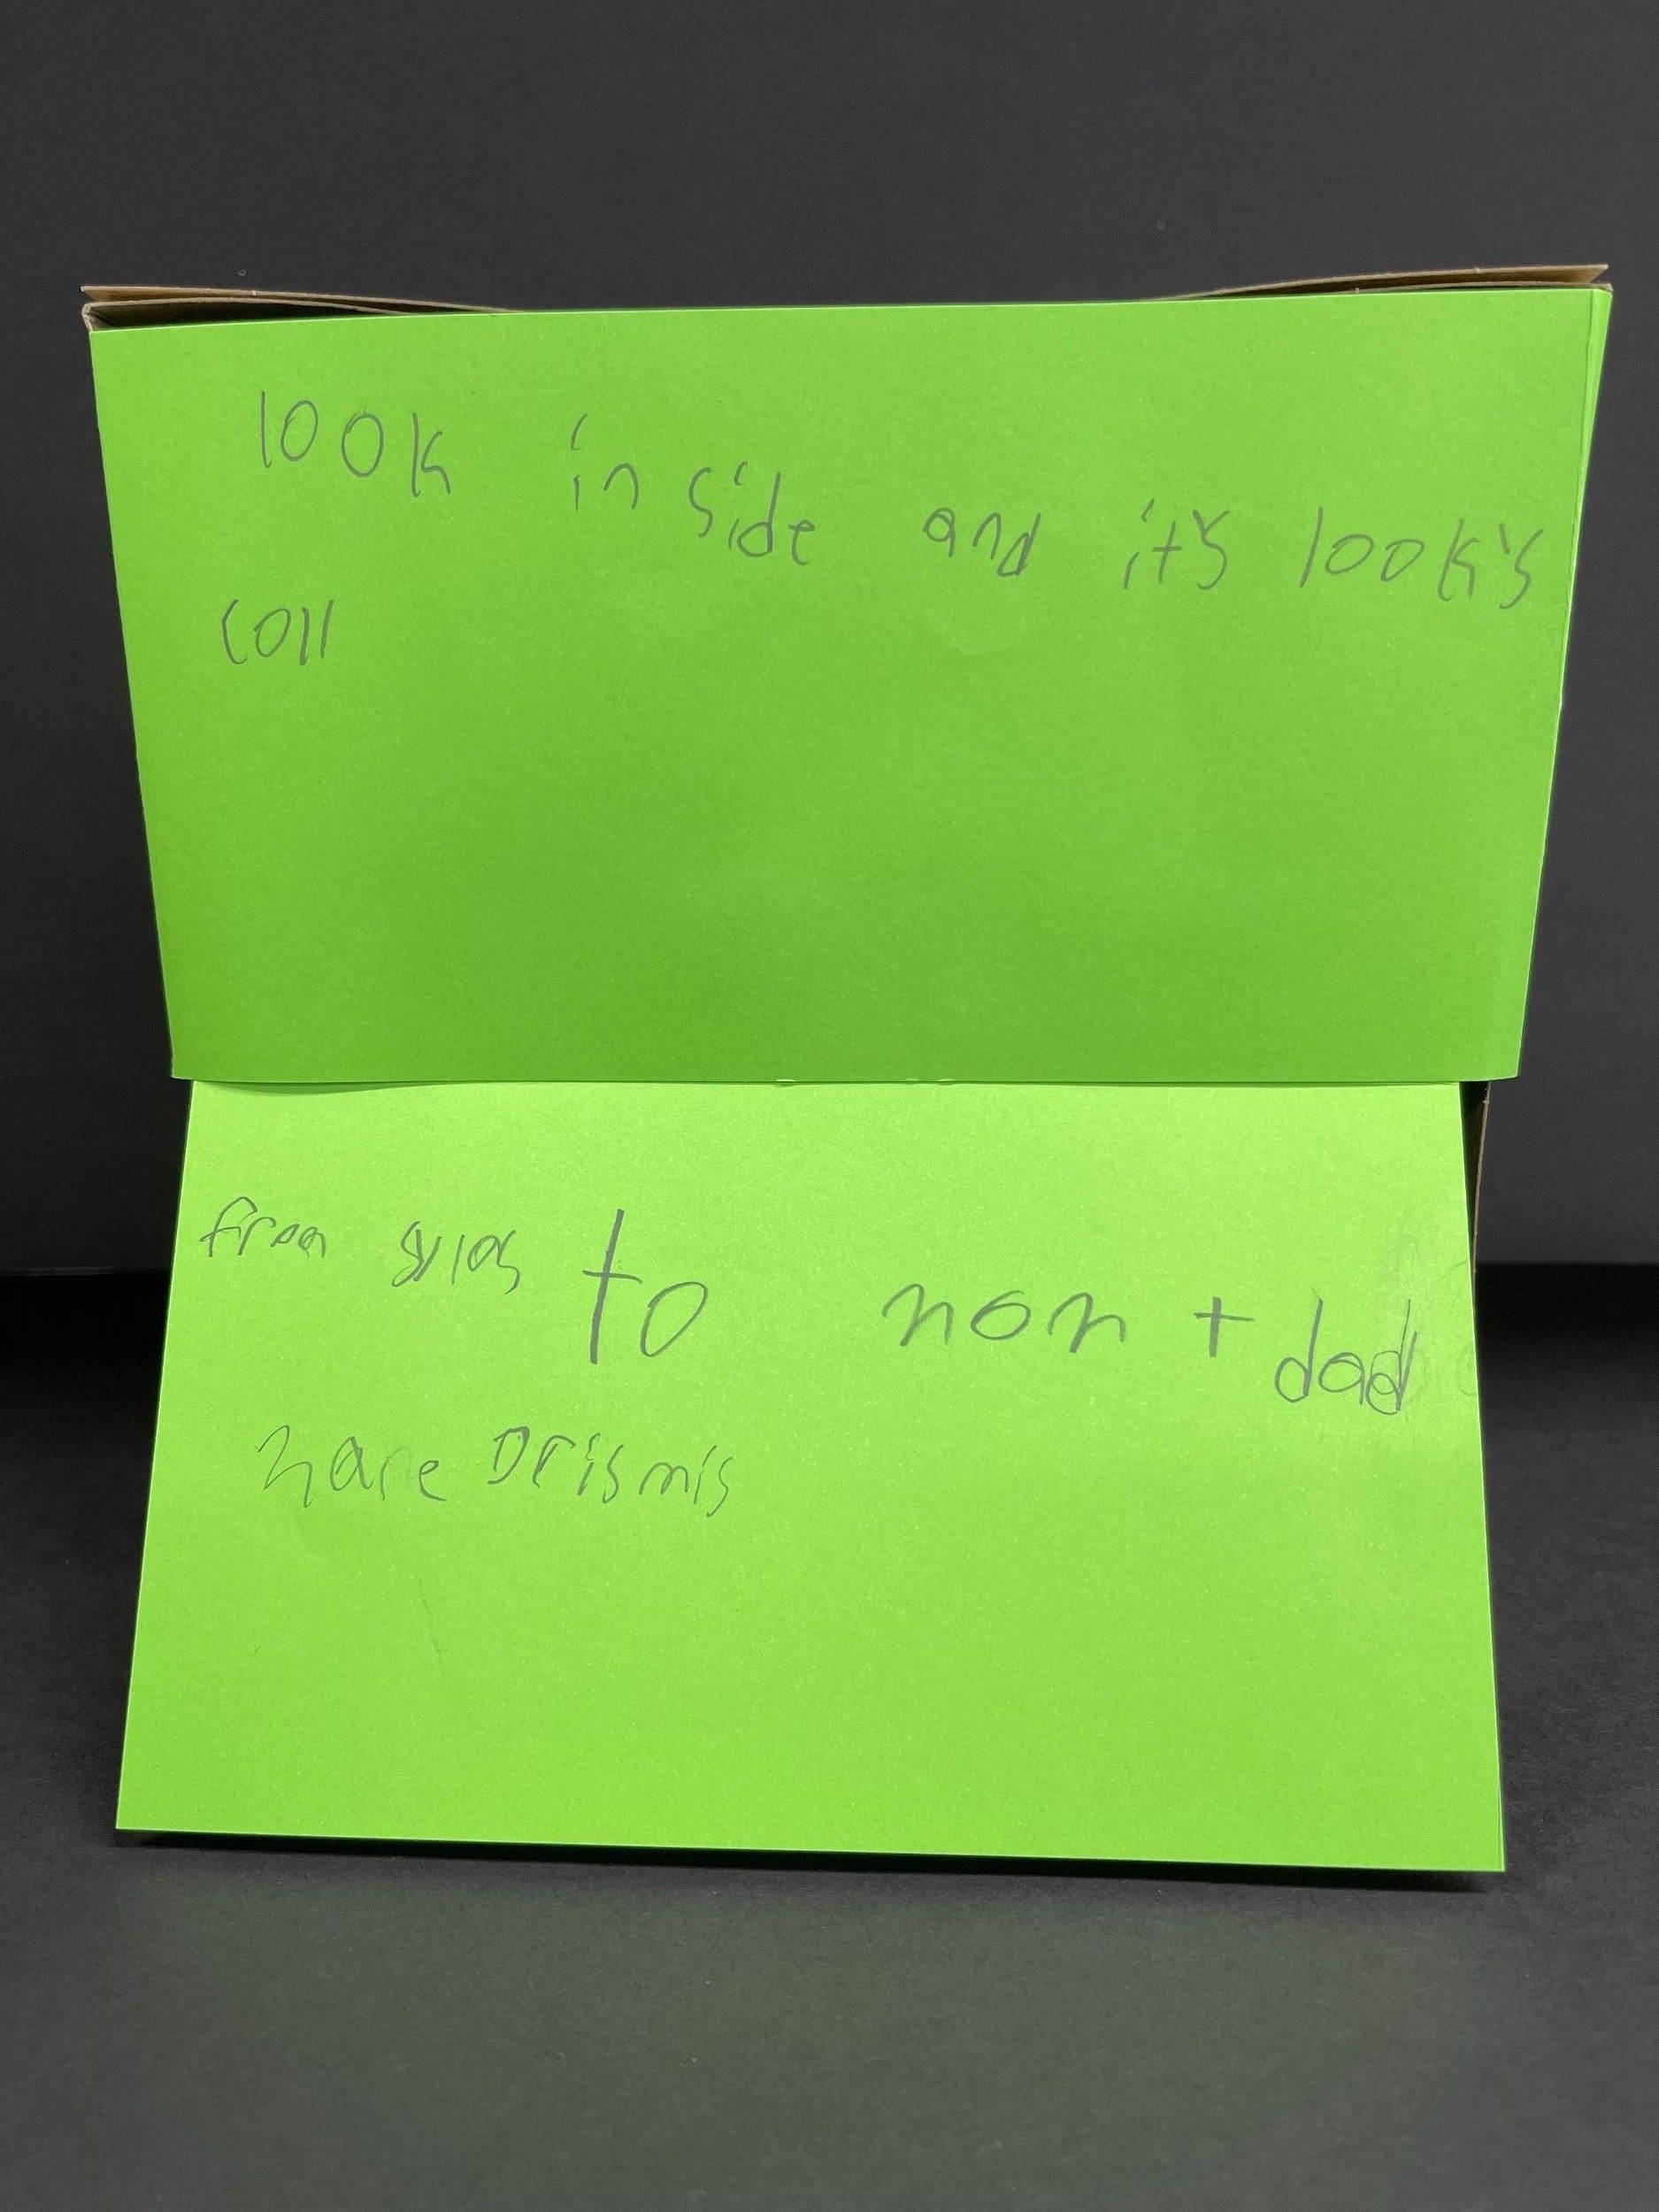 look in side and it's look's
coll
from sylas to non + dad
hare Drismis